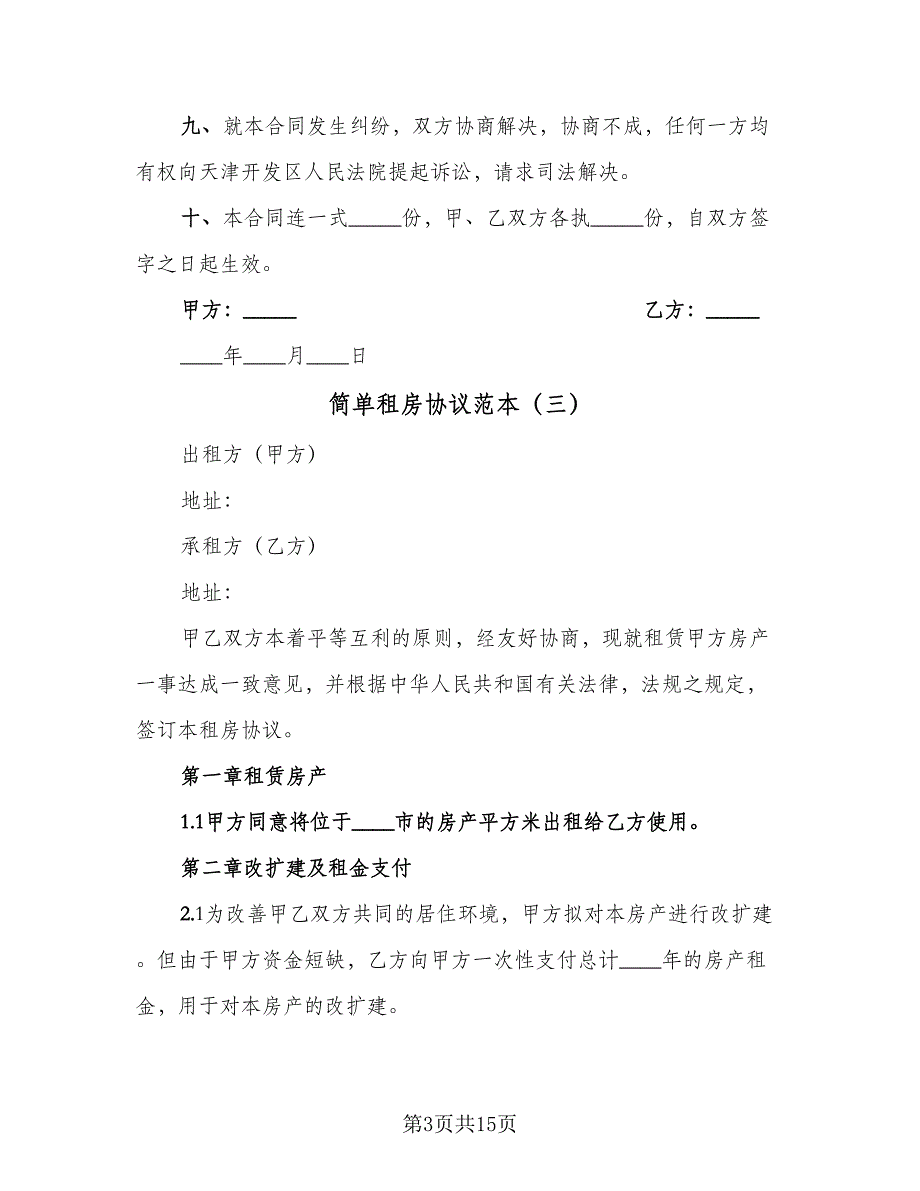 九、就本合同发生纠纷，双方协商解决，协商不成，任何一方均
有权向天津开发区人民法院提起诉讼，请求司法解决。
十、本合同连一式_____份，甲、乙双方各执_____份，自双方签
字之日起生效。
甲方：_____ 乙方：_____
____年____月____日
简单租房协议范本（三）
出租方（甲方）
地址：
承租方（乙方）
地址：
甲乙双方本着平等互利的原则，经友好协商，现就租赁甲方房产
一事达成一致意见，并根据中华人民共和国有关法律，法规之规定，
签订本租房协议。
第一章租赁房产
1.1甲方同意将位于____市的房产平方米出租给乙方使用。
第二章改扩建及租金支付
2.1为改善甲乙双方共同的居住环境，甲方拟对本房产进行改扩建
。但由于甲方资金短缺，乙方向甲方一次性支付总计____年的房产租
金，用于对本房产的改扩建。
第3页共15页